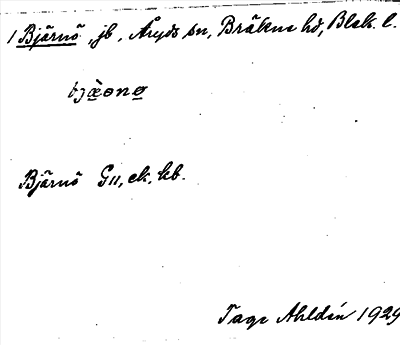 1 Björnö, jb, Åryds sn, Bräkne hd, Blek. l.
bjὰ̱ɵnø̱
Björnö G11, ek, kb.
Tage Ahldén 1929